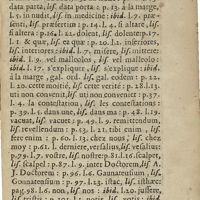 data parta, lis. data porta : p. 13. à la marge,
l. 5. in nudit, lis. in medicinæ : ibid. l. 7. præ-
senti, lis. præsertim : p. 14. l. 4. si altare, lis.
si altera : p. 16. l. 21. doient, lis. dolente: p. 17.
l. 1. & quæ, lis. ea quæ : p. 20. l. 2. inferiores,
lis. interiores : ibid. l. 7. misere, lis. mittere:
ibid. l. 9. vel malleolos, lis. vel malleolo :
ibid. l. 17. s'expliquer, lis. s'explique: ibid.
à la marge, gal. ord. lis. gal. eodem : p. 22.
l. 20. cette moitié, lis. cette verité : p. 28. l. 13.
un non convenit, lis. uti non convenit : p. 37.
l. 4. la contestation, lis. les contestations :
p. 39. l. 1. dans une, lis. dans ma : p. 48. l. 19.
vacuat, lis. vacuet : p. 49. l. 9. remmittendum,
lis. revellendo : p. 53. l. 21. tibi enim , lis.
fere enim : p. 60. l. 13. chez nous, lis. chez
moy : p. 61. l. derniere, versalius, lis. vesalius:
p. 79. l. 7. voster, lis. nostre: p. 81. l. 16. scalpet,
lis. scalpel : p. 87. l. 9. inter Doctorem, lis. A
J. Doctorem : p. 96. l. 6. Gaunateusium, lis.
Gonnatensium : p. 97. l. 23. istac, lis. isthæc:
pag. 98. l. 6. non, lis. nos : ibid. l. 20. justere,